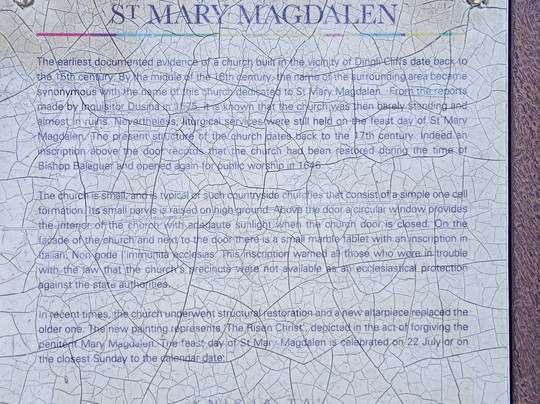 ST MARY MAGDALEN
The earliest documented evidence of a church built in the vicinity of Dingli Cliffs date back to
the 15th century. By the middle of the 16th century, the name of the surrounding area became
synonymous with the name of this church dedicated to St Mary Magdalen. From the reports
made by Inquisitor Dusina in 1575, it is known that the church was then barely standing and
almost in ruins. Nevertheless, liturgical services were still held on the feast day of St Mary
Magdalen. The present structure of the church dates back to the 17th century. Indeed an
inscription above the door records that the church had been restored during the time of
Bishop Balaguer and opened again for public worship in 1646.
The church is small, and is typical of such countryside churches that consist of a simple one cell
formation. Its small parvis is raised on high ground. Above the door a circular window provides
the interior of the church with adeqaute sunlight when the church door is closed. On the
façade of the church and next to the door there is a small marble tablet with an inscription in
Italian: Non gode l'immunità ecclesias. This inscription warned all those who were in trouble
with the law that the church's precincts were not available as an ecclesiastical protection
against the state authorities.
In recent times, the church underwent structural restoration and a new altarpiece replaced the
older one. The new painting represents 'The Risen Christ', depicted in the act of forgiving the
penitent Mary Magdalen. The feast day of St Mary Magdalen is celebrated on 22 July or on
the closest Sunday to the calendar date.